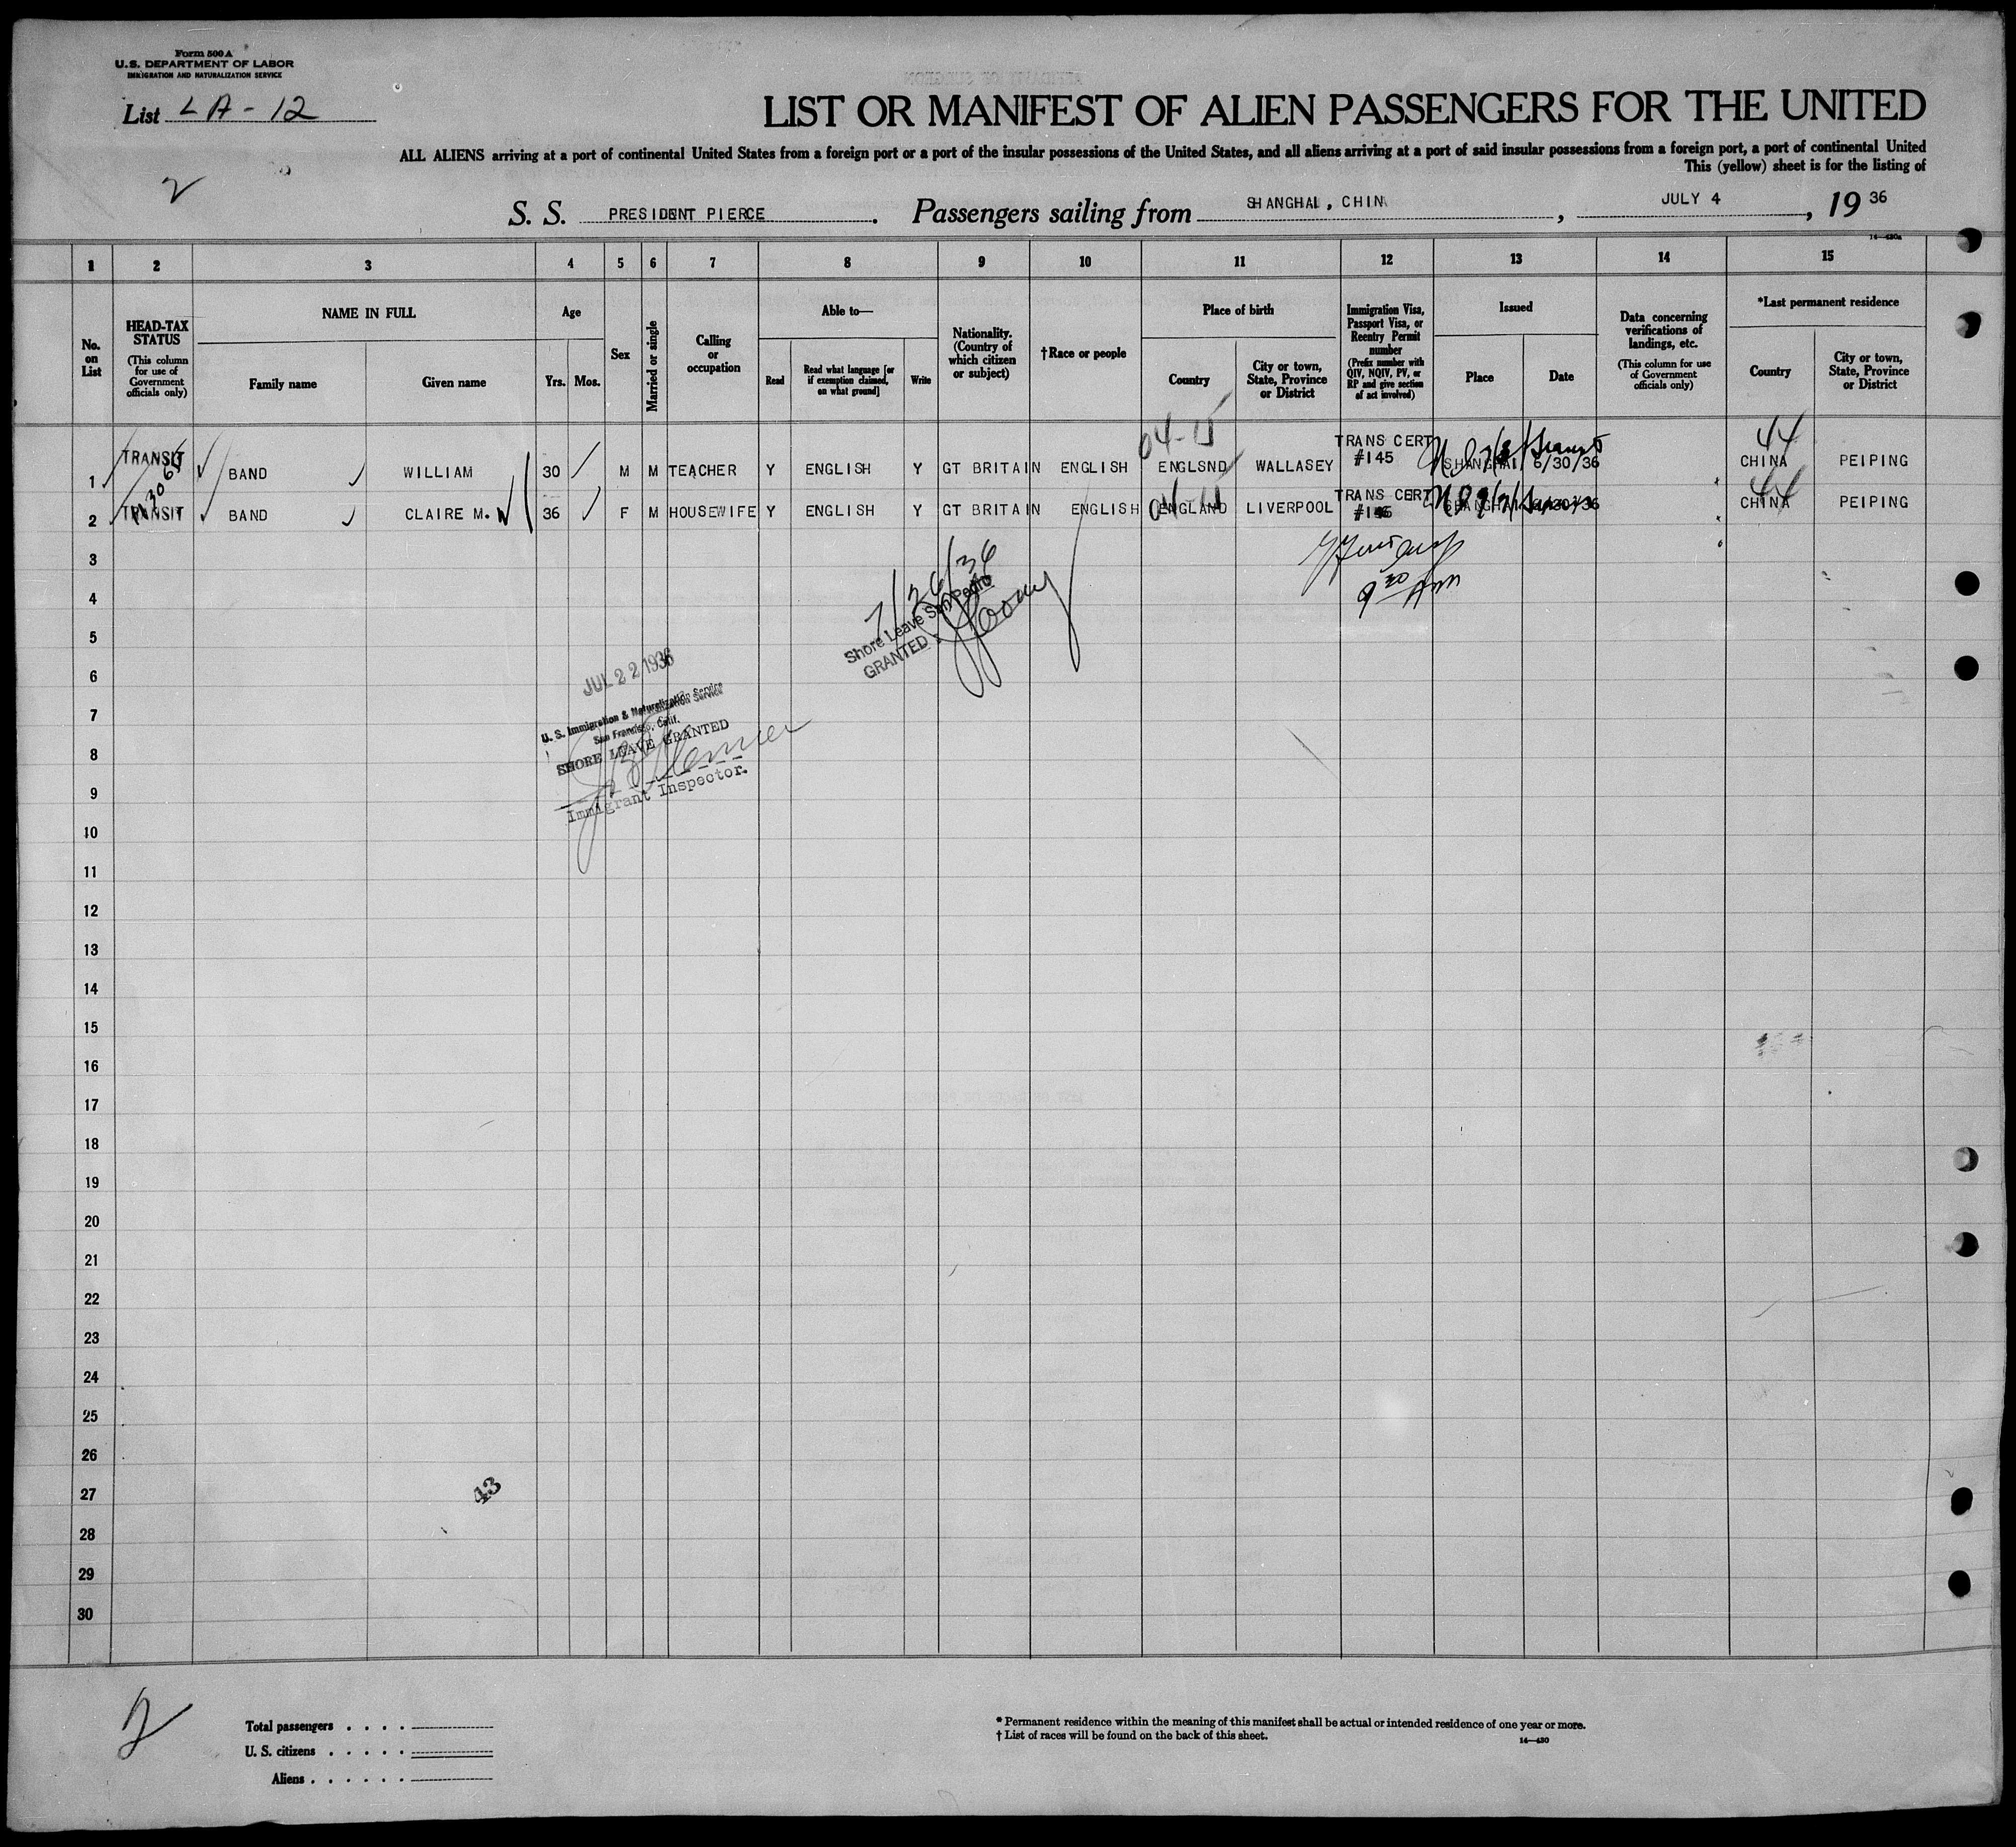 Form 500 A
U. S. DEPARTMENT OF LABOR
IMMIGRATION AND NATURALIZATION SERVICE
List LA-12
LIST OR MANIFEST OF ALIEN PASSENGERS FOR THE UNITED
ALL ALIENS arriving at a port of continental United States from a foreign port or a port of the insular possessions of the United States, and all aliens arriving at a port of said insular possessions from a foreign port, a port of continental United
This (yellow) sheet is for the listing of
2
S. S. PRESIDENT PIERCE. Passengers sailing from SHANGHAI, CHIN, JULY 4, 19 36
1 2 3 4 5 6 7 8 9 10 11 12 13 14 15
No. on List
HEAD-TAX STATUS
(This column for use of Government officials only)
NAME IN FULL
Family name
Given name
Age
Yrs. Mos.
Sex
Married or single
Calling or occupation
Able to—
Read
Read what language [or if exemption claimed, on what ground]
Write
Nationality. (Country of which citizen or subject)
†Race or people
Place of birth
Country
City or town, State, Province or District
Immigration Visa, Passport Visa, or Reentry Permit number
(Prefix number with QIV, NQIV, PV, or RP and give section of act involved)
Issued
Place
Date
Data concerning verifications of landings, etc.
(This column for use of Government officials only)
*Last permanent residence
Country
City or town, State, Province or District
04-15
44
1 TRANSIT BAND WILLIAM 30 M M TEACHER Y ENGLISH Y GT BRITAIN ENGLISH ENGLSND WALLASEY TRANS CERT #145 SHANGHAI 6/30/36 CHINA PEIPING
44
2 TRANSIT BAND CLAIRE M. 36 F M HOUSEWIFE Y ENGLISH Y GT BRITAIN ENGLISH ENGLAND LIVERPOOL TRANS CERT #146 SHANGHAI 6/30/36 CHINA PEIPING
3
4
5
6
7
8
9
10
11
12
13
14
15
16
17
18
19
20
21
22
23
24
25
26
27
28
29
30
7/26/36
Shore Leave San Pedro
GRANTED
JUL 22 1936
U. S. Immigration & Naturalization Service
San Francisco, Calif.
SHORE LEAVE GRANTED
Immigrant Inspector.
43
2
Total passengers . . . .
U. S. citizens . . . . .
Aliens . . . . . .
* Permanent residence within the meaning of this manifest shall be actual or intended residence of one year or more.
† List of races will be found on the back of this sheet.
14—430